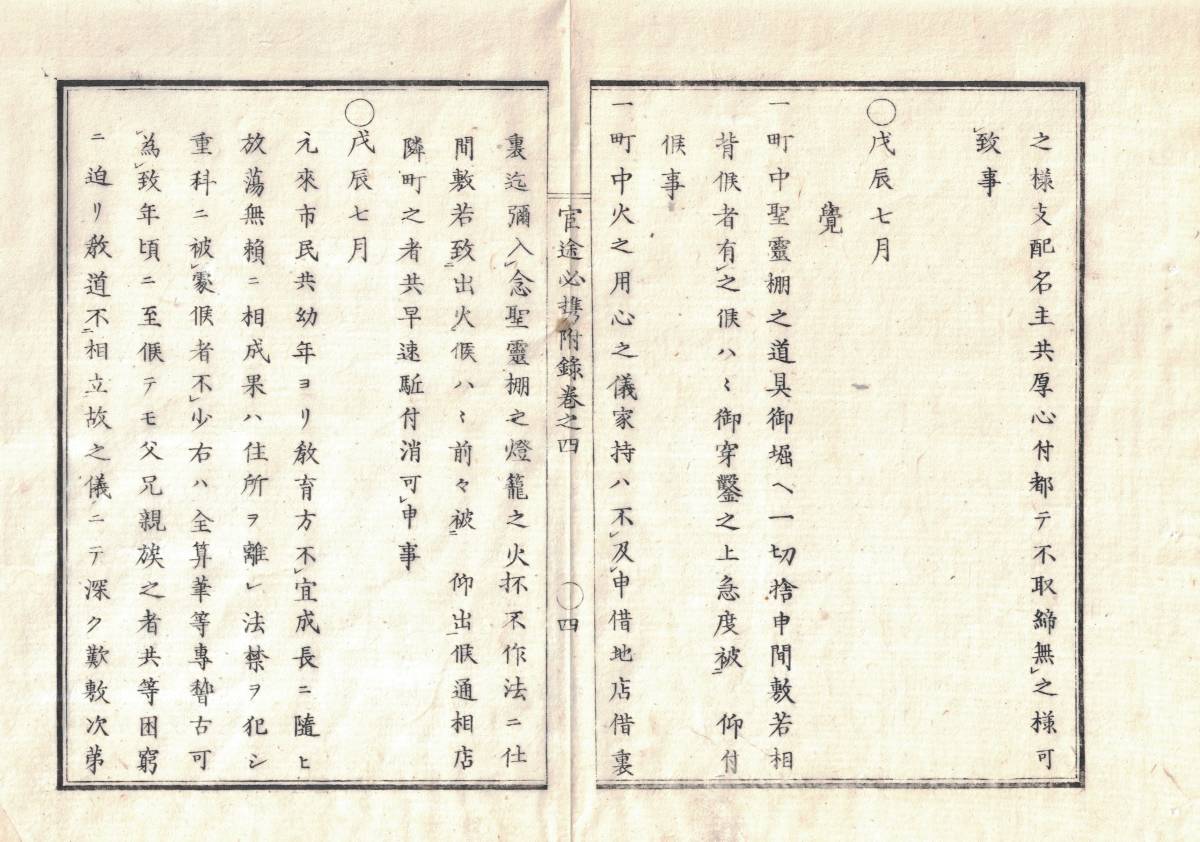 之様支配名主共厚心付都テ不取締無㆑之様可
㆑致事
〇戊辰七月
覺
一町中聖靈棚之道具御堀ヘ一切捨申間敷若相
背候者有㆑之候ハヽ御穿鑿之上急度被㆓ 仰付
候事
一町中火之用心之儀家持ハ不㆑及㆑申借地店借裏
官途必携附錄卷之四 〇四
裏迄彌入㆑念聖靈棚之燈籠之火抔不作法ニ仕
間敷若致㆓出火㆒候ハヽ前々被㆓ 仰出㆒候通相店
隣町之者共早速駈付消可㆑申事
〇戊辰七月
元來市民共幼年ヨリ敎育方不㆑宜成長ニ隨ヒ
放蕩無賴ニ相成果ハ住所ヲ離㆑法禁ヲ犯シ
重科ニ被㆑處候者不㆑少右ハ全算筆等專㆓古可
㆑爲㆑致年頃ニ至候テモ父兄親族之者共等困窮
ニ迫リ敎道不㆓相立㆒故之儀ニテ深ク歎敷次第